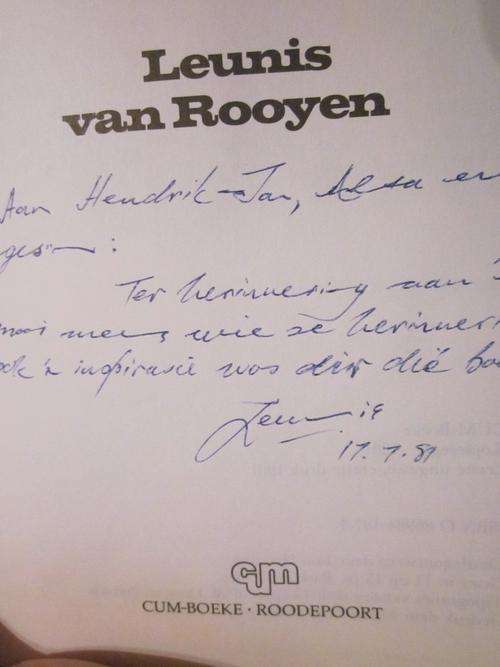 Leunis
van Rooyen
Aan Hendrik-Jan, Alta en
gesin:
Ter herinnering aan 'n
mooi mens wie se herinner
ook 'n inspirasie was deur dié bo
Leunis
17.7.89
cum
CUM-BOEKE · ROODEPOORT